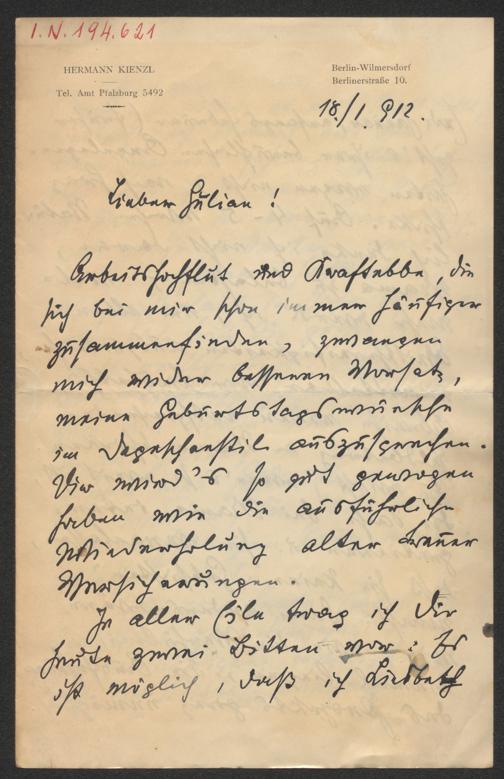 I.N. 194.621
HERMANN KIENZL
Tel. Amt Pfalzburg 5492
Berlin-Wilmersdorf
Berlinerstraße 10.
18./I. 912.
Lieber Julian!
Arbeitshochflut und Kraftebbe, die
sich bei mir schon immer häufiger
zusammenfinden, zwangen
mich wider besseren Vorsatz,
meine Geburtstagswünsche
im Depeschenstil auszusprechen.
Dir wird's so gut
haben wie die ausführliche
Wiederholung alter treuer
Versicherungen.
In aller Eile trag ich Dir
heute zwei Bitten vor: Es
ist möglich, daß ich Liesbeth